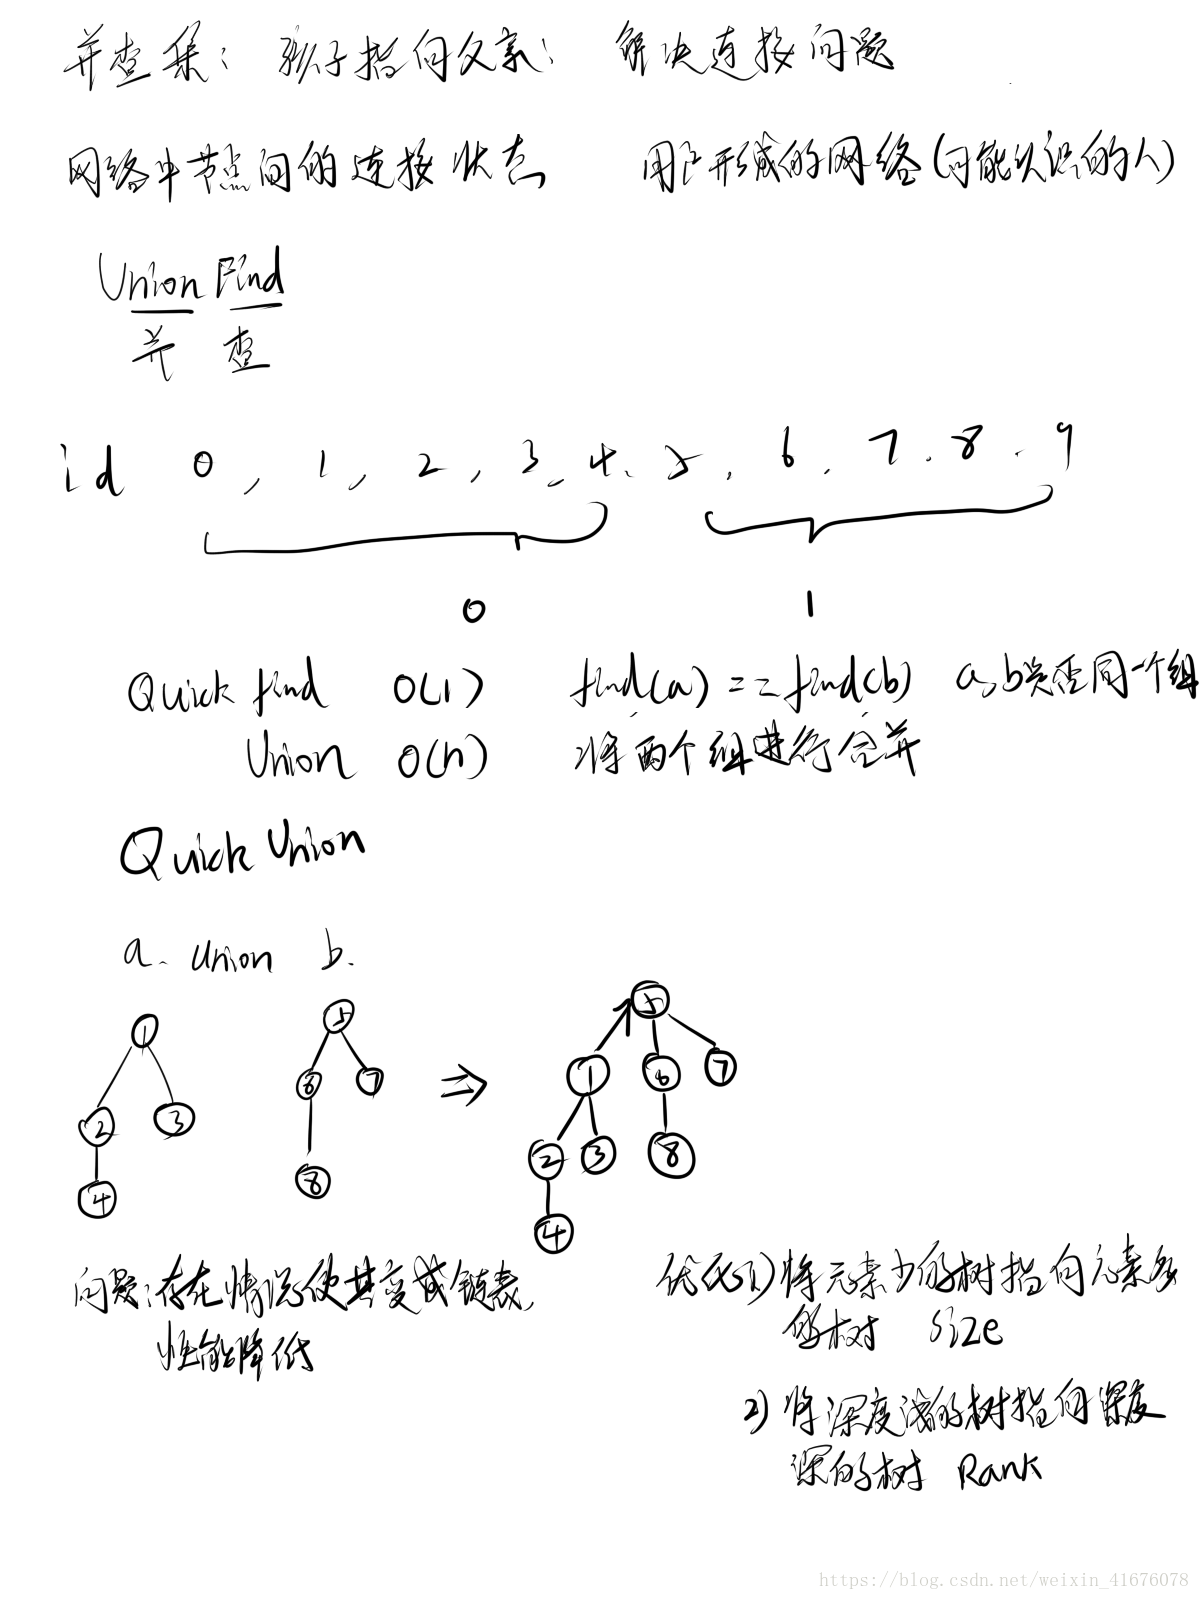 并查集: 孩子指向父亲; 解决连接问题
网络中节点间的连接状态 用户形成的网络(可能认识的人)
Union Find
并 查
id 0, 1, 2, 3, 4, 5, 6, 7, 8, 9
0 1
Quick find O(1) find(a) == find(b) a,b是否同一个组
Union O(n) 将两个组进行合并
Quick Union
a. union b.
1 5 5
2 3 6 7 ⇒ 1 6 7
4 8 2 3 8
4
问题:存在情况使其变成链表, 优化1)将元素少的树指向元素多
性能降低 的树 size
2)将深度浅的树指向深度
深的树 Rank
https://blog.csdn.net/weixin_41676078